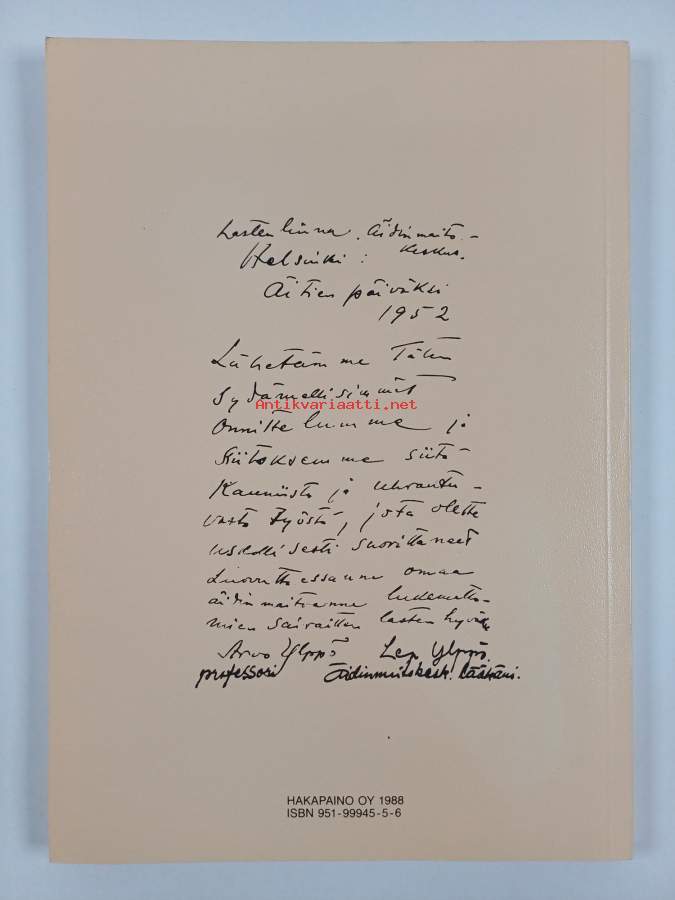 Lastenlinna. Äidinmaito-
Helsinki: keskus.
Äitien päiväksi
1952
Lähetämme Täten
sydämellisimmät
Antikvariaatti.net
Onnittelumme ja
Kiitoksemme siitä
Kauniista ja uhrautu-
vasta työstä, jota olette
uskollisesti suorittaneet
Luovuttaessanne omaa
äidinmaitoanne lukematto-
mien sairaitten lasten hyväksi
Arvo Ylppö Lea Ylppö
professori Äidinmaitokesk. lääkäri.
HAKAPAINO OY 1988
ISBN 951-99945-5-6